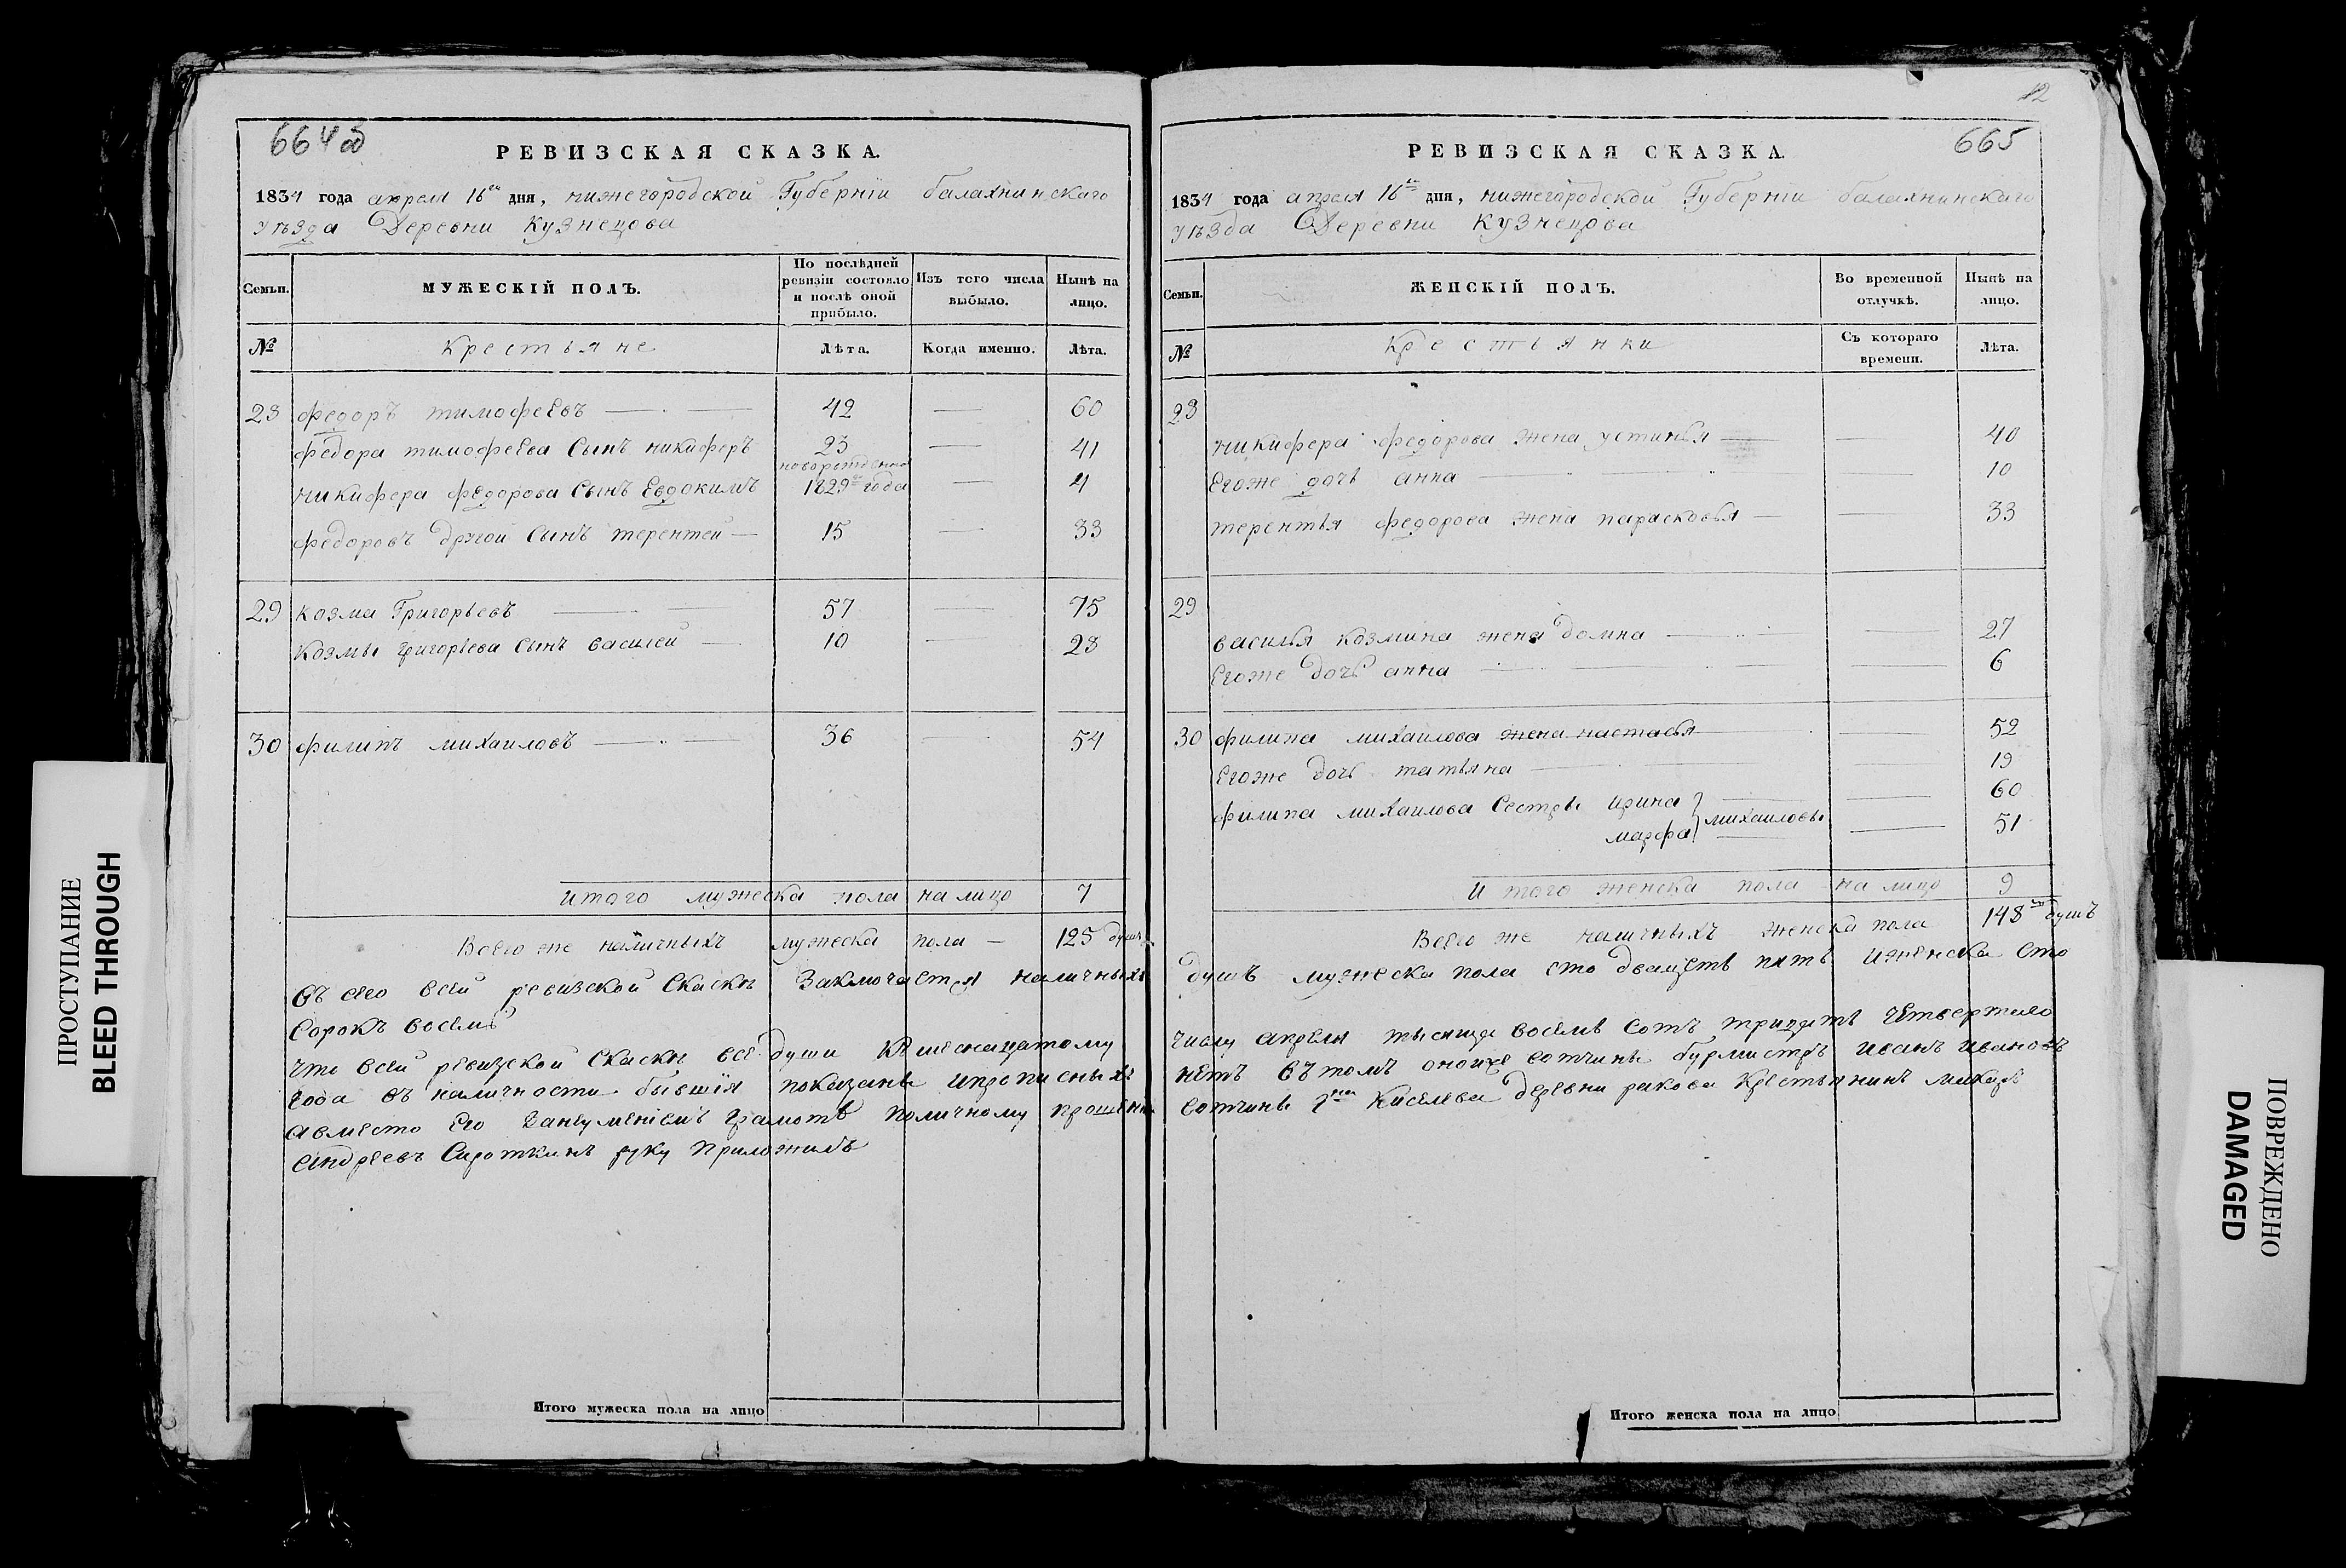 664 об
РЕВИЗСКАЯ СКАЗКА.
1834 года апреля 16го дня, нижегородской Губернїи балахнинскаго
уѣзда Деревни Кузнецова
Семьи.
МУЖЕСКІЙ ПОЛЪ.
По послѣдней ревизіи состояло и послѣ оной прибыло.
Изъ того числа выбыло.
Нынѣ на лицо.
№
Крестьяне
Лѣта.
Когда именно.
Лѣта.
28 федоръ тимофеевъ — 42 — 60
федора тимофеева Сынъ никифоръ 23 — 41
новорожденной
никифора федорова Сынъ Евдокимъ 1829го года — 4
федоровъ другой Сынъ терентей — 15 — 33
29 козма Григорьевъ — 57 — 75
Козмы григорьева Сынъ василей — 10 — 28
30 филипъ михаиловъ — 36 — 54
итого мужеска пола на лицо 7
Всего же наличныхъ мужеска пола — 125 душъ
Въ сего всей ревизской Скаскѣ Заключается наличныхъ
Сорокъ восемь
что всей ревизской Скаскѣ все души Кшеснацатому
года въ наличности бывшїя показаны ипрописныхъ
Авместо Его грамотѣ поличному прошенїю
Андреевъ Сироткинъ руку Приложилъ
Итого мужеска пола на лицо
12
665
РЕВИЗСКАЯ СКАЗКА.
1834 года апреля 16го дня, нижегородской Губернїи балахнинскаго
уѣзда Деревни Кузнецова
Семьи.
ЖЕНСКІЙ ПОЛЪ.
Во временной отлучкѣ.
Нынѣ на лицо.
№
Крестьянки
Съ котораго времени.
Лѣта.
28
никифора федорова жена устинья — — 40
Егоже дочь анна — — 10
терентья федорова жена парасковья — — 33
29
василья козмина жена домна — — 27
Егоже дочь анна — — 6
30 филипа михаилова жена настасья — 52
Егоже дочь татьяна — — 19
филипа михаилова Сестры ирина — — 60
марфа михаиловы — 51
И того женска пола на лицо 9
Всего же наличныхъ женска пола 148 душъ
душъ мужеска пола сто двацеть пять иженска сто
числу апреля тысяща восемь сотъ тридцать четвертаго
нетъ Въ томъ оной вотчины бурмистръ иванъ ивановъ
вотчины Гна Киселева деревни ракова Крестьянинъ макаръ
Итого женска пола на лицо
ПРОСТУПАНИЕ
BLEED THROUGH
ПОВРЕЖДЕНО
DAMAGED